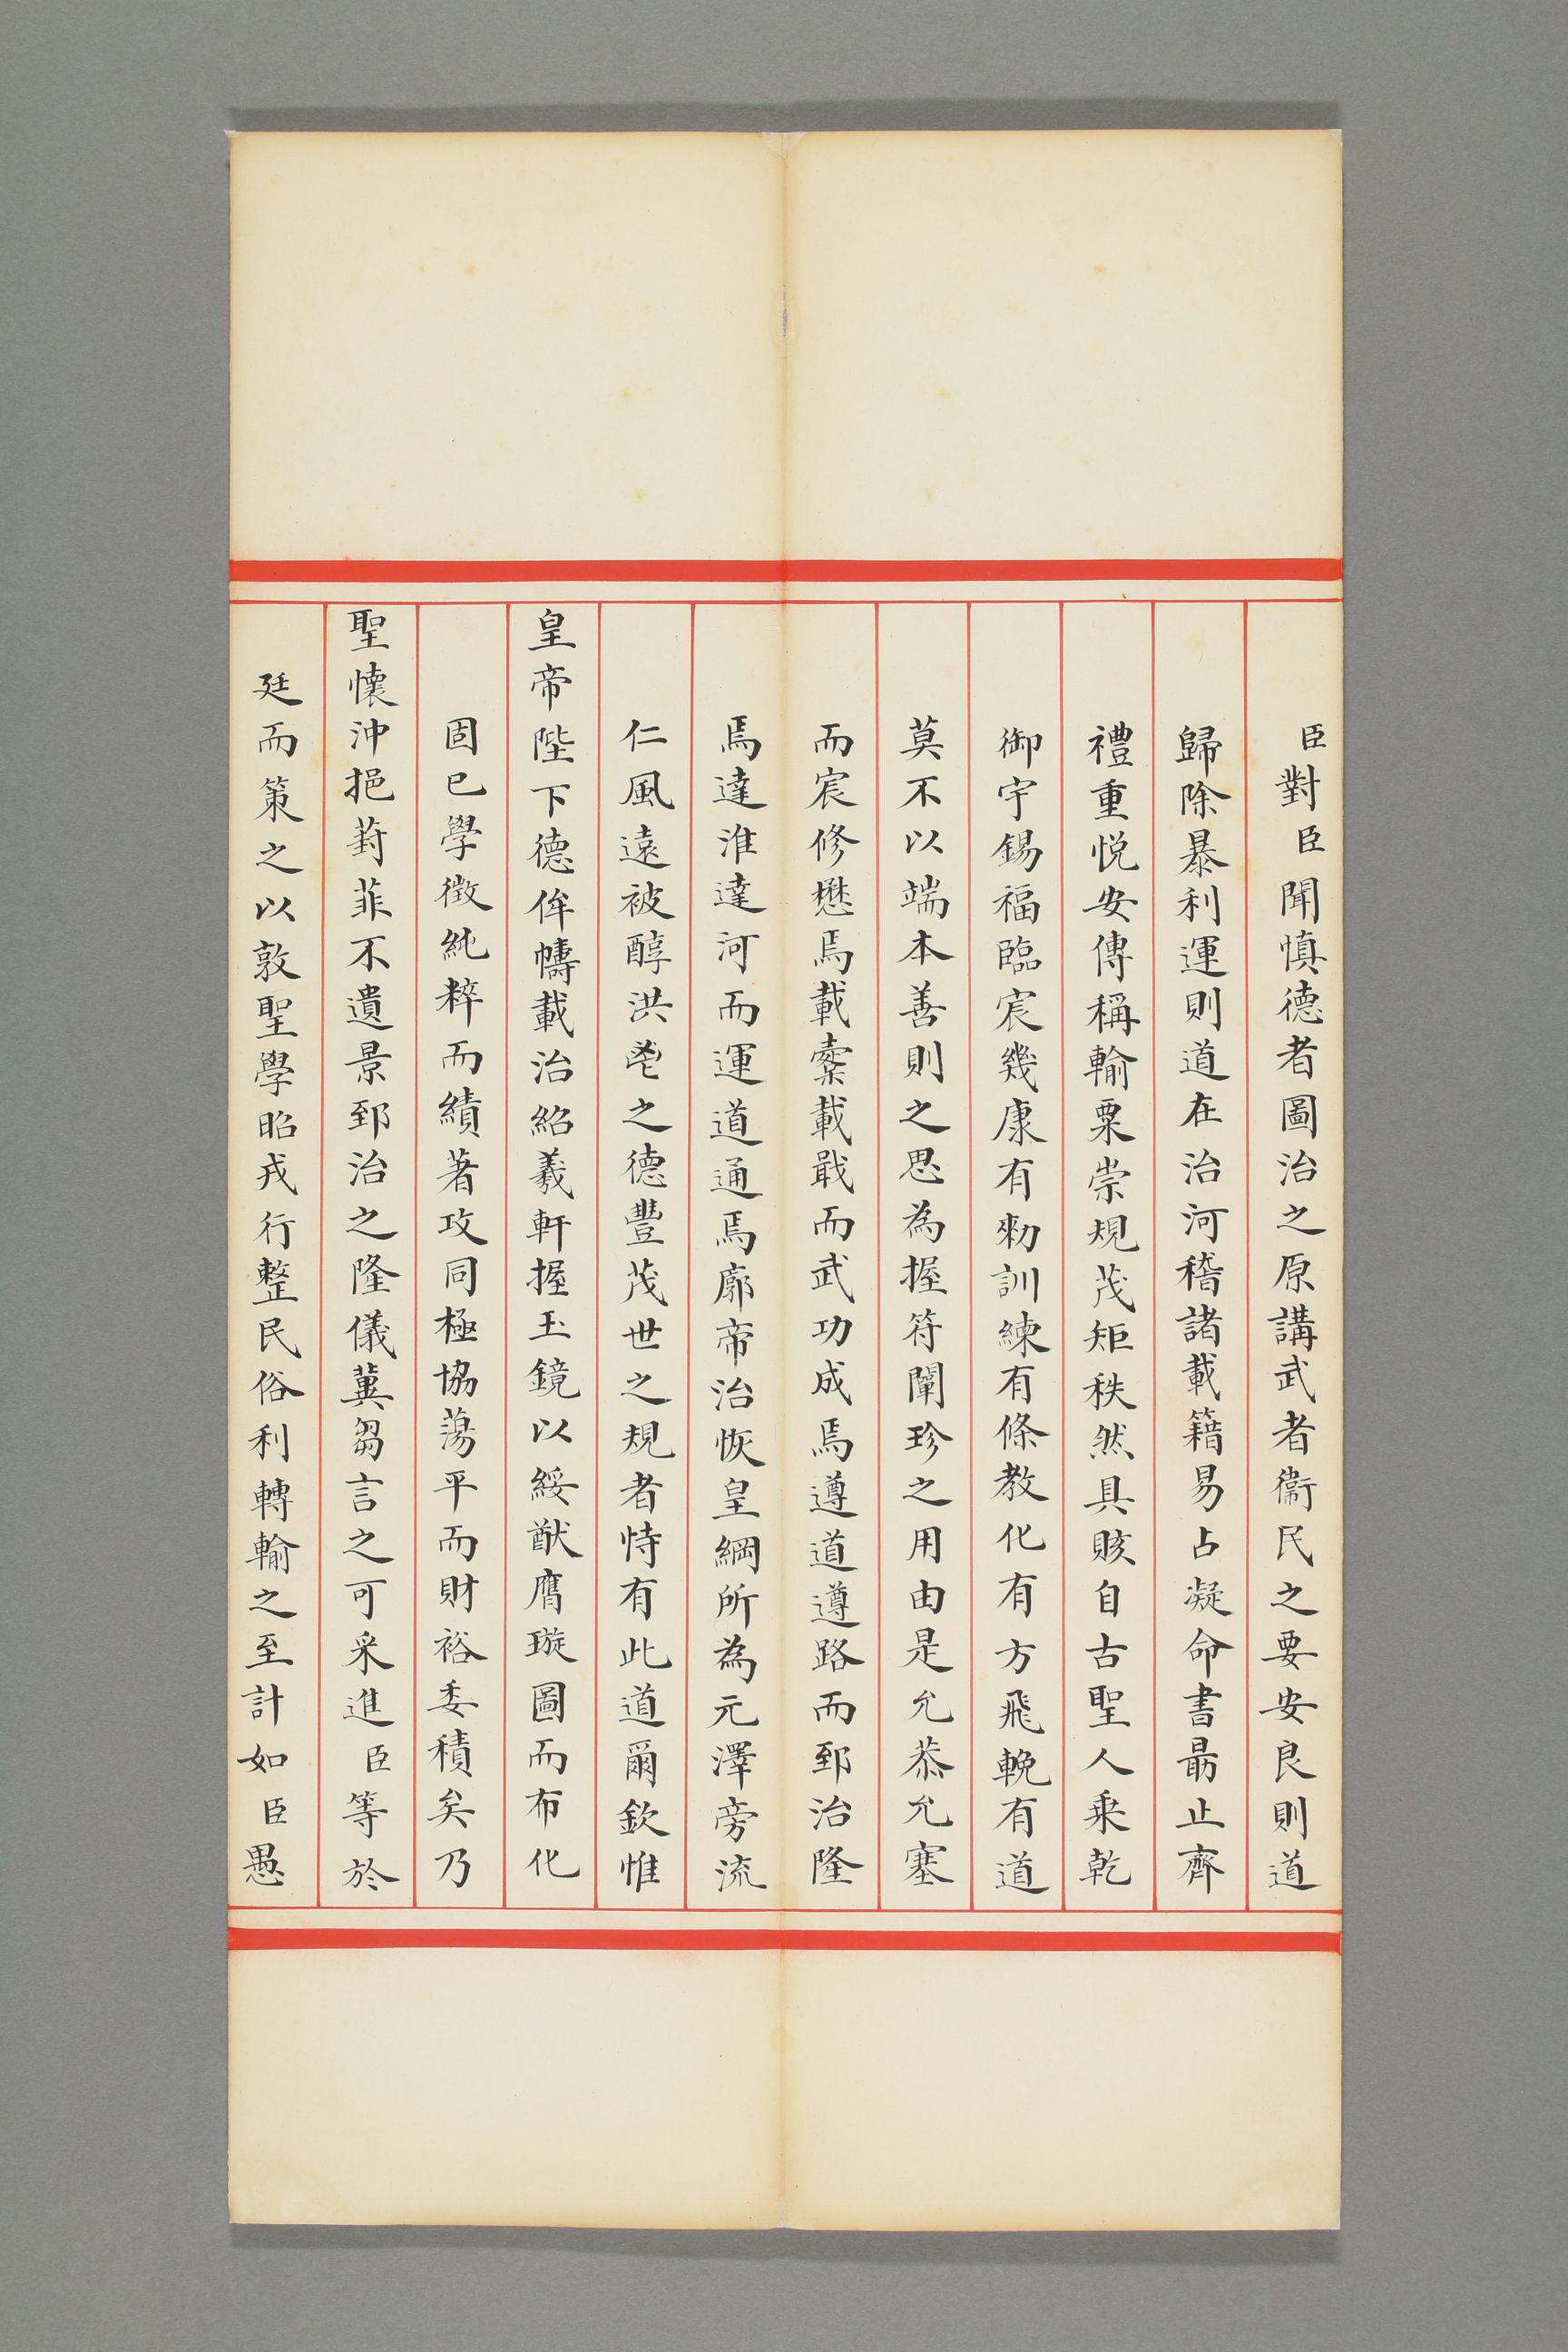 臣對臣聞慎德者圖治之原講武者衞民之要安良則道
歸除暴利運則道在治河稽諸載籍易占凝命書朂止齊
禮重悅安傳稱輸粟崇規茂矩秩然具賅自古聖人乘乾
御宇錫福臨宸幾康有勑訓練有條教化有方飛輓有道
莫不以端本善則之思為握符闡珍之用由是允恭允塞
而宸修懋焉載櫜載戢而武功成焉遵道遵路而郅治隆
焉達淮達河而運道通焉廓帝治恢皇綱所為元澤旁流
仁風遠被醇洪鬯之德豐茂世之規者恃有此道爾欽惟
皇帝陛下德侔幬載治紹羲軒握玉鏡以綏猷膺璇圖而布化
固已學徵純粹而績著攻同極協蕩平而財裕委積矣乃
聖懷沖挹葑菲不遺景郅治之隆儀冀芻言之可采進臣等於
廷而策之以敦聖學昭戎行整民俗利轉輸之至計如臣愚